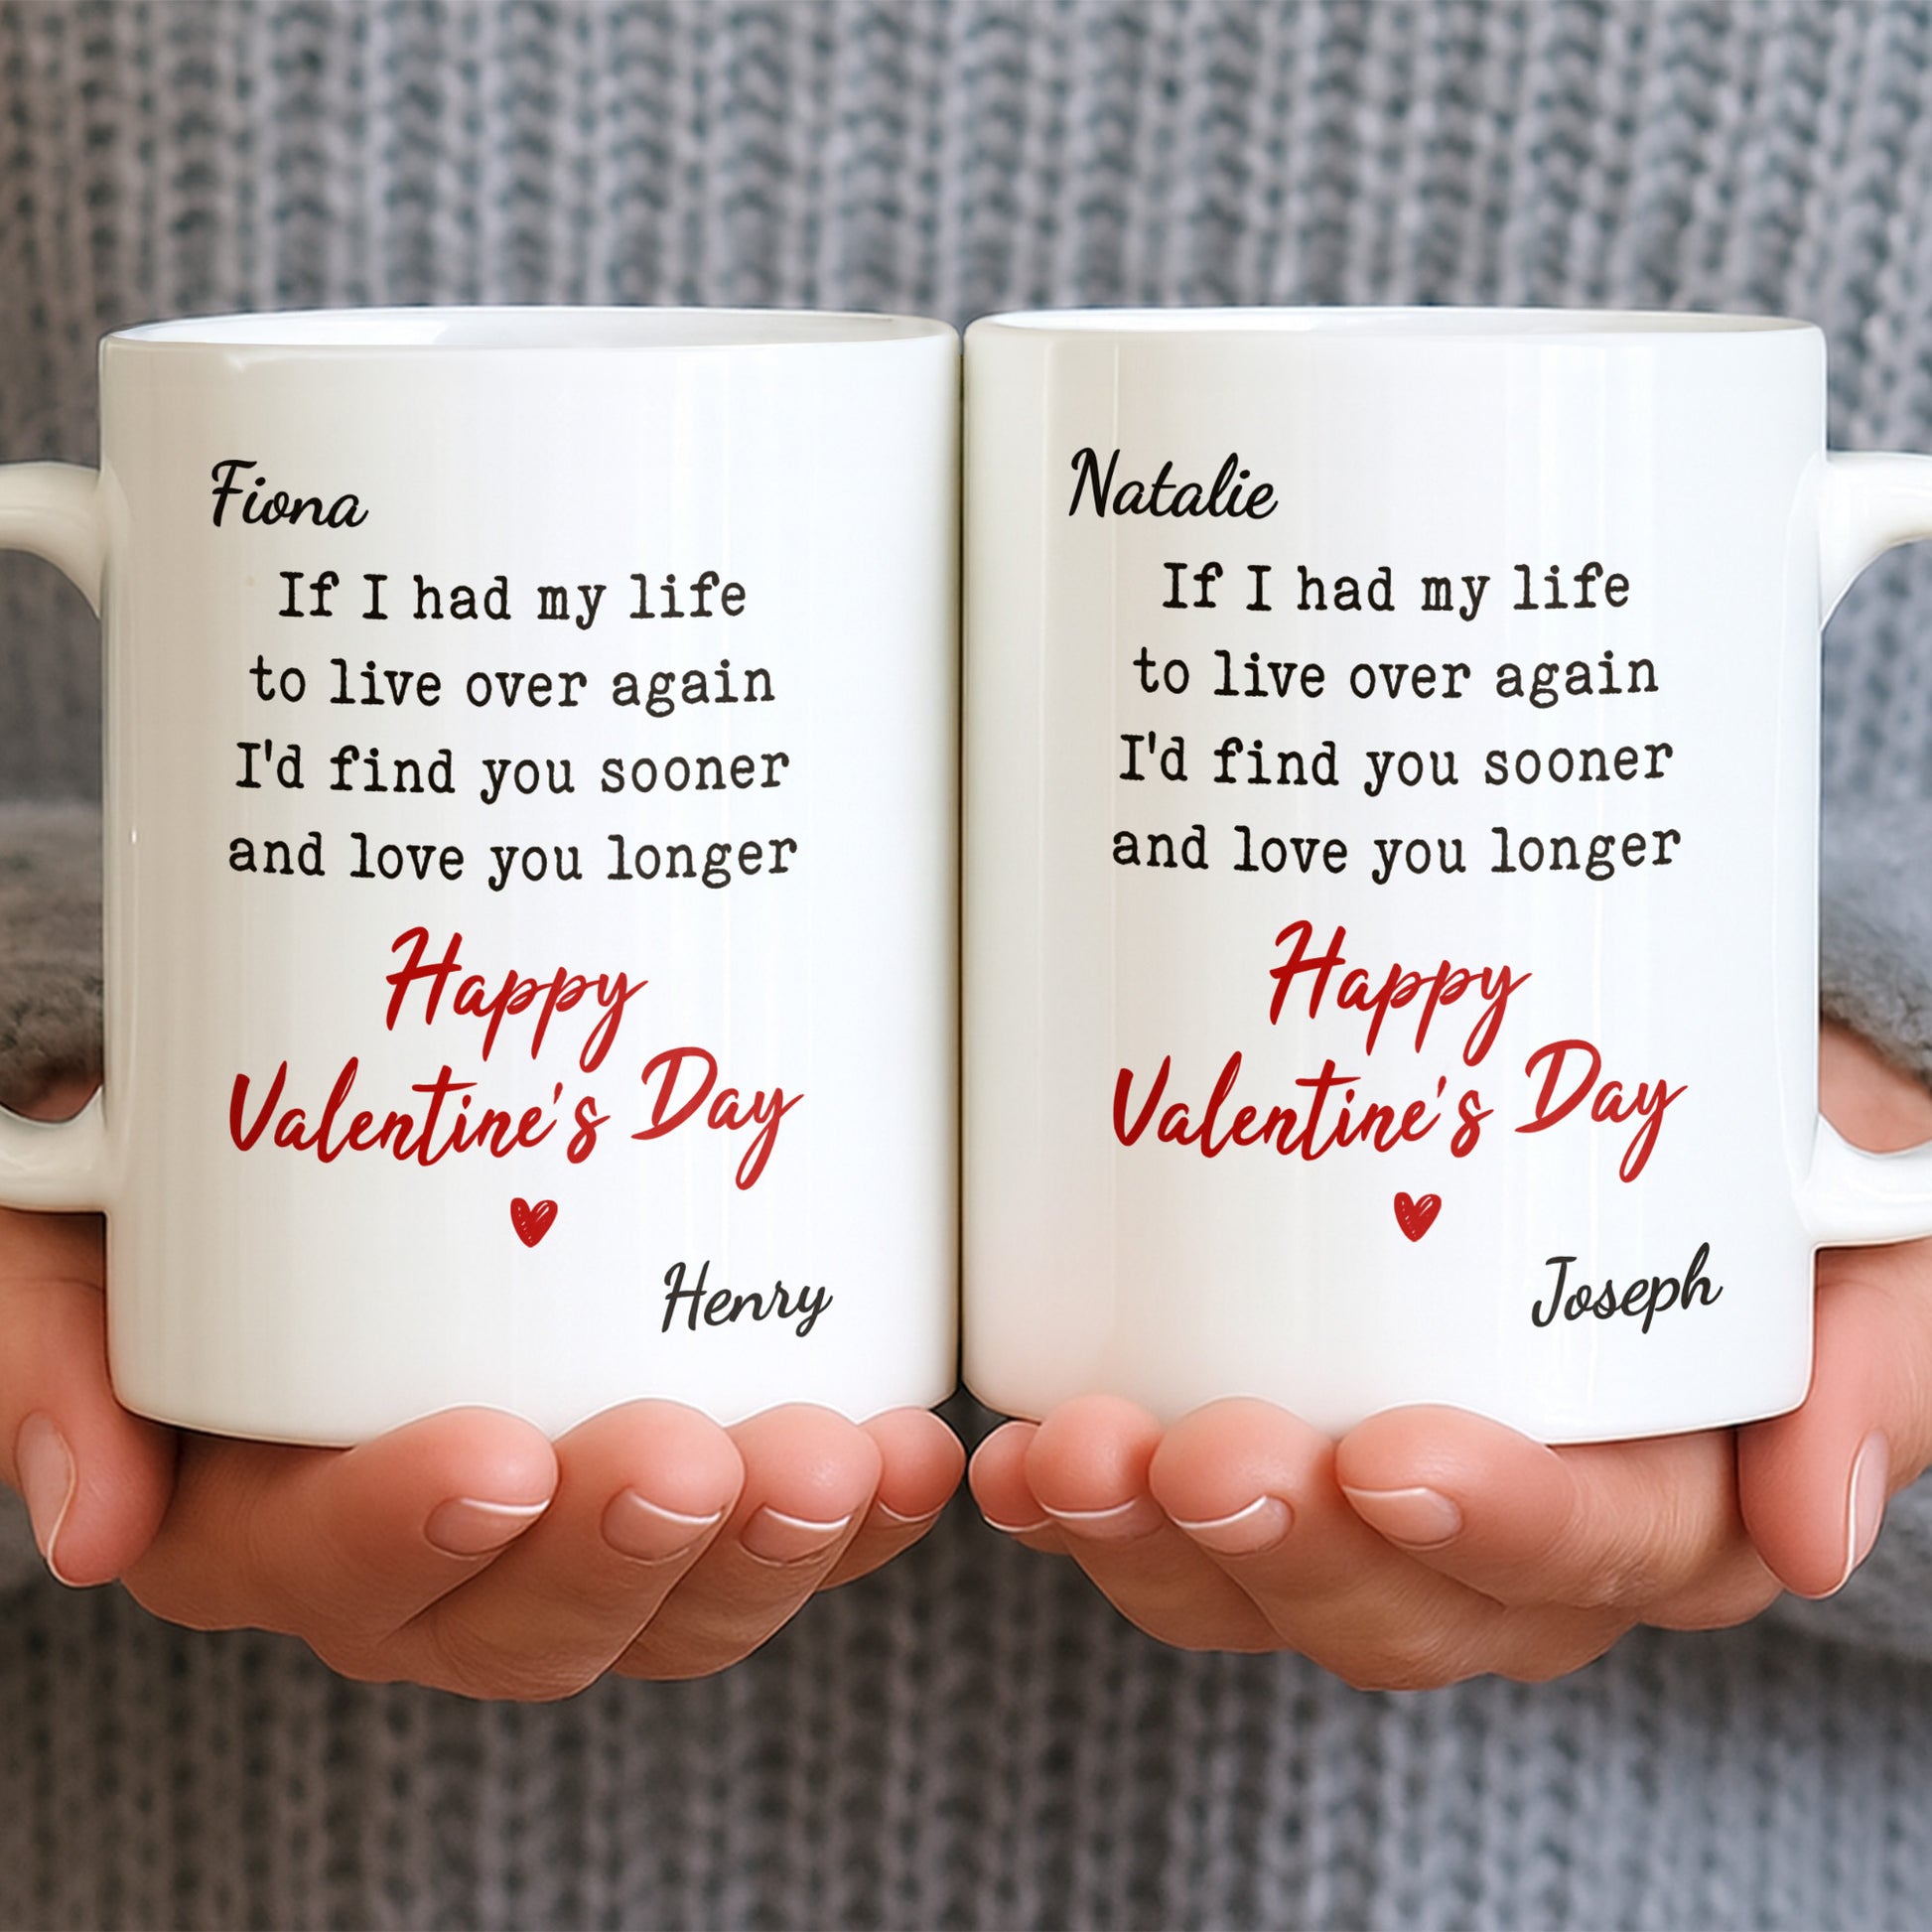 Fiona
If I had my life
to live over again
I'd find you sooner
and love you longer
Happy
Valentine's Day
Henry
Natalie
If I had my life
to live over again
I'd find you sooner
and love you longer
Happy
Valentine's Day
Joseph